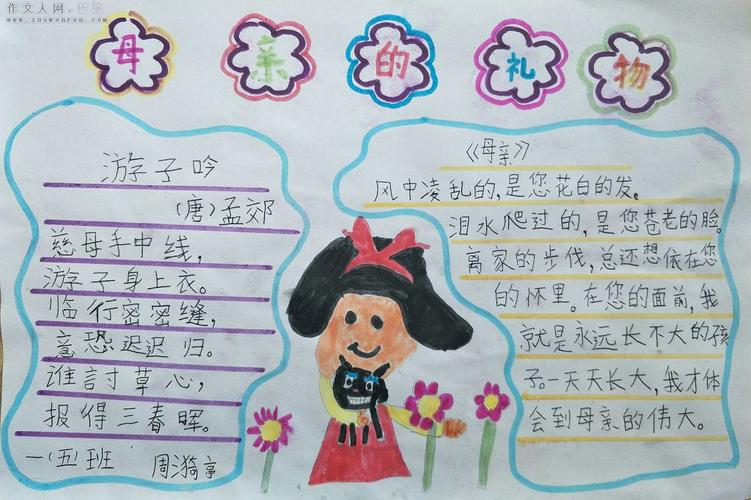 作文人网
www.zuowenren.com
母亲的礼物
游子吟
(唐)孟郊
慈母手中线，
游子身上衣。
临行密密缝，
意恐迟迟归。
谁討草心，
报得三春晖。
一(五)班 周漪亭
《母亲》
风中凌乱的，是您花白的发。
泪水爬过的，是您苍老的脸。
离家的步伐，总还想依在您
的怀里。在您的面前，我
就是永远长不大的孩
子。一天天长大，我才体
会到母亲的伟大。